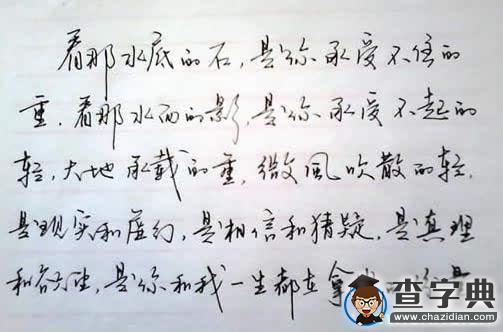 看那水底的石，是你承受不住的
重．看那水面的影，是你承受不起的
轻，大地承载的重，微风吹散的轻，
是现实和虚幻，是相信和猜疑，是真理
和谎，是你和我一生都在拿
查字典
www.chazidian.com